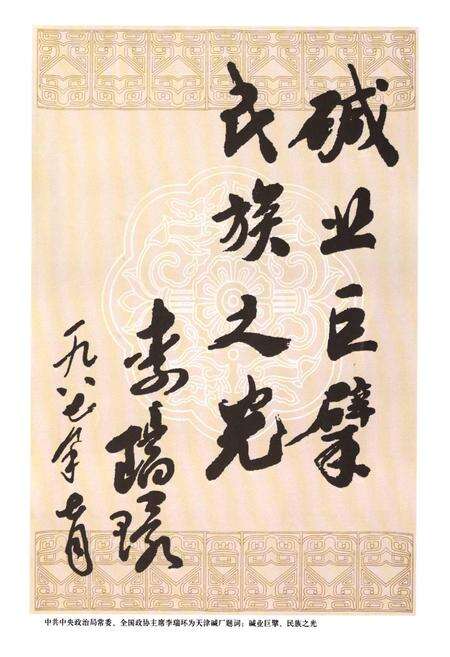 碱业巨擘
民族之光
李瑞环
一九八七年 月
中共中央政治局常委、全国政协主席李瑞环为天津碱厂题词：碱业巨擘、民族之光